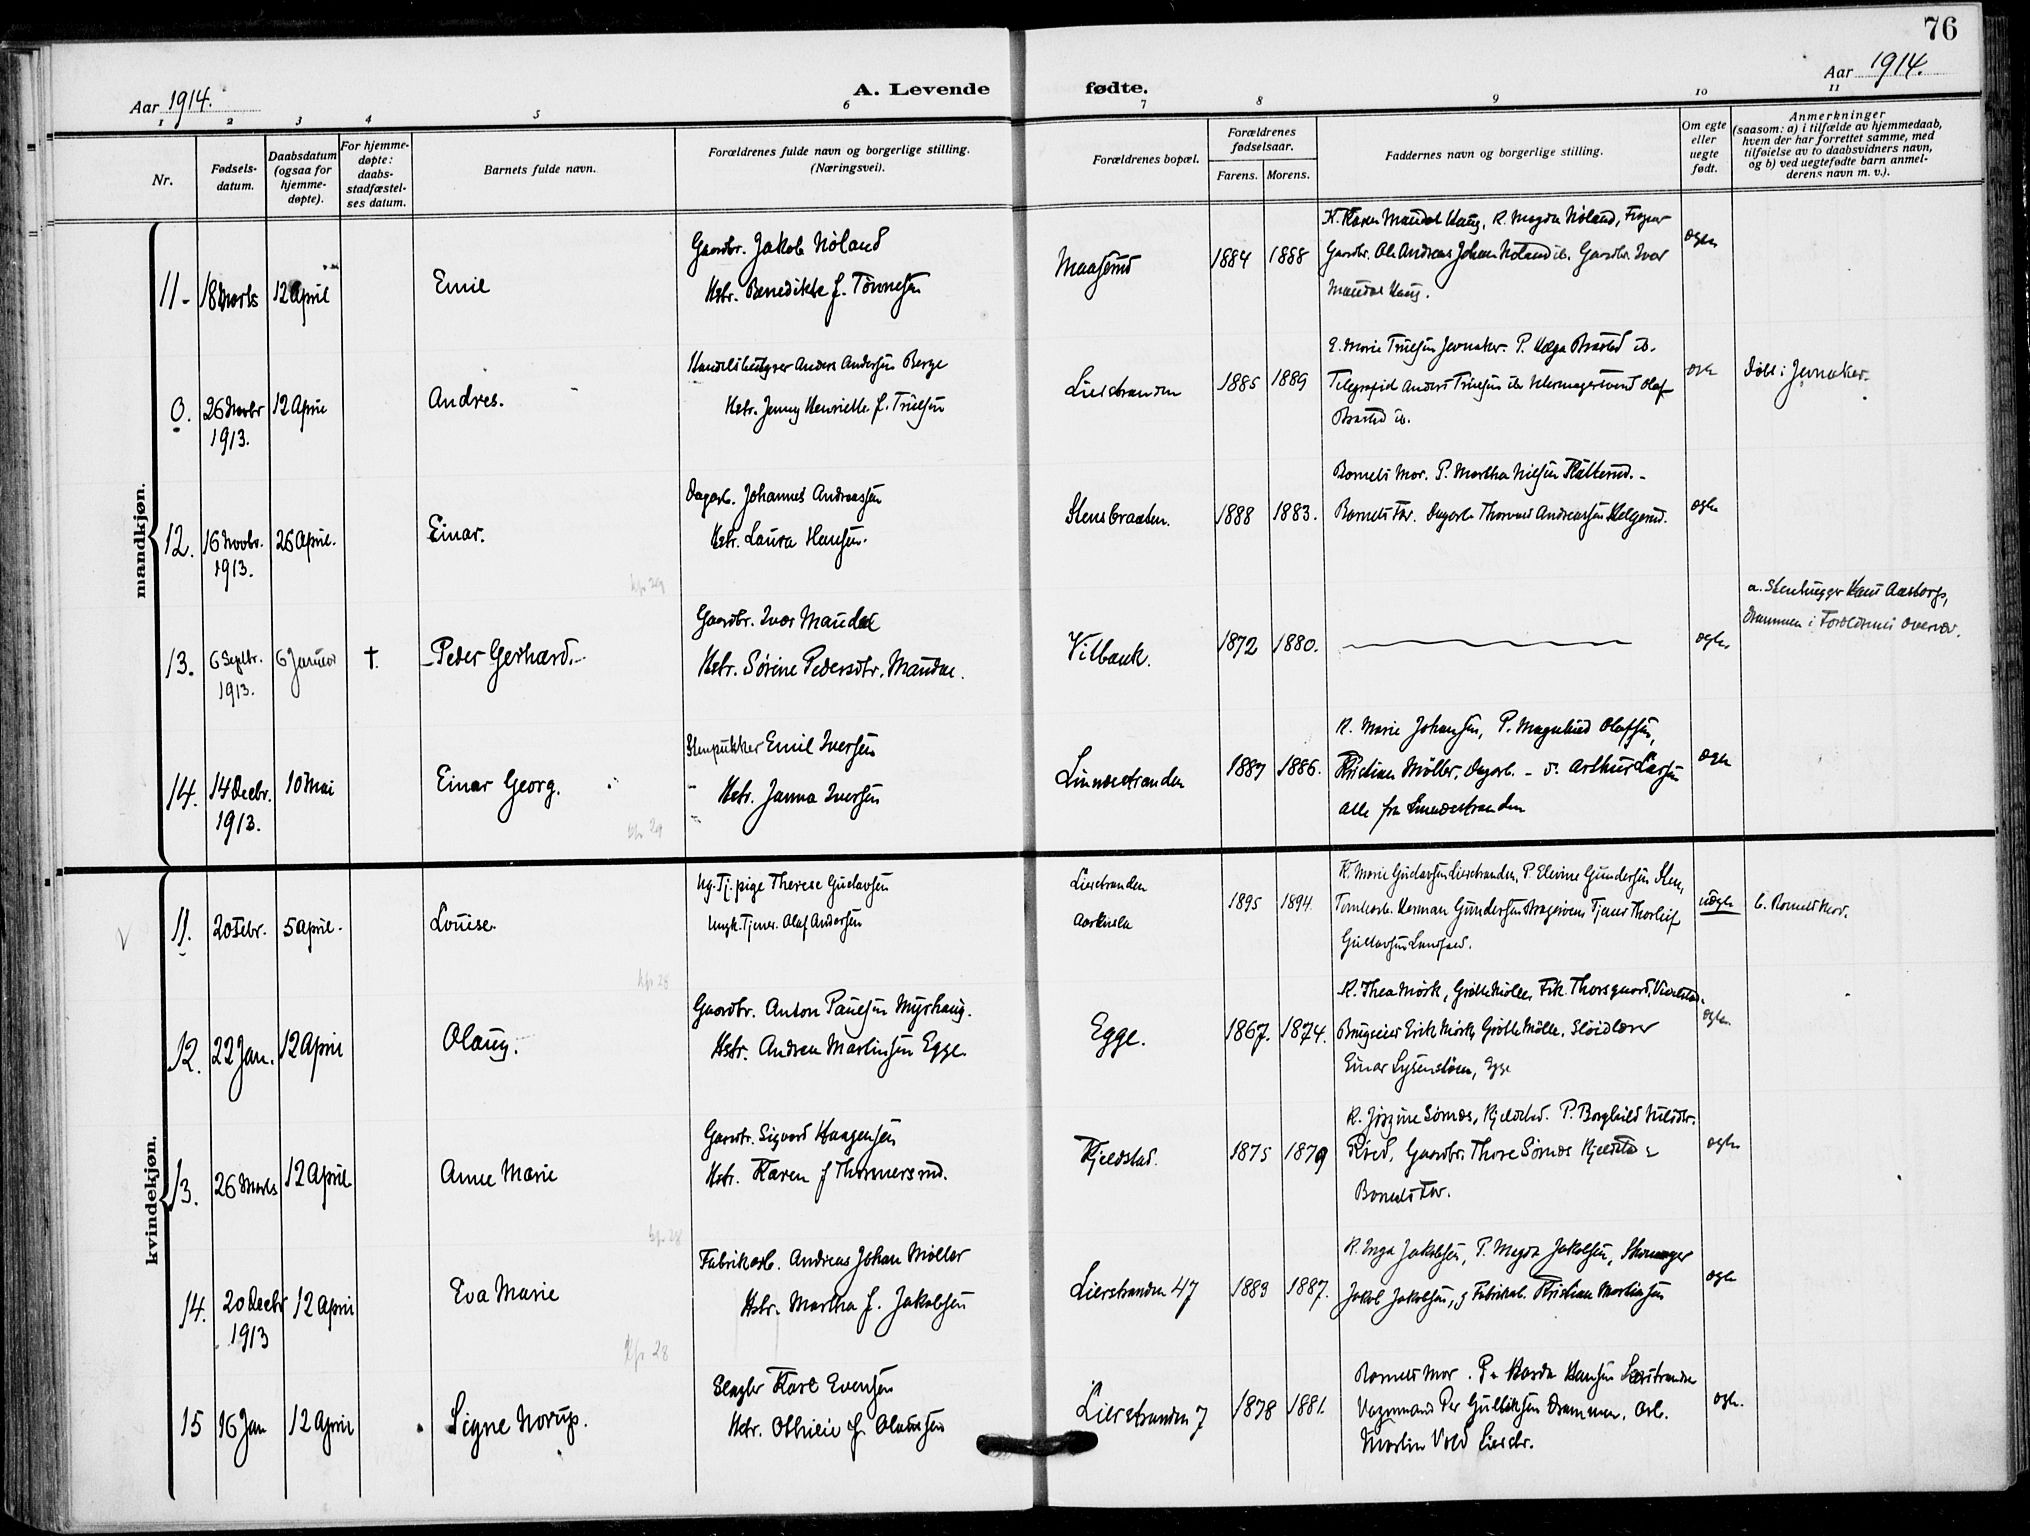 76
Aar 1914.
A. Levende fødte.
Aar 1914.
1 2 3 4 5 6 7 8 9 10 11
Nr.
Fødsels-
datum.
Daabsdatum
(ogsaa for
hjemme-
døpte).
For hjemme-
døpte:
daabs-
stadfæstel-
ses datum.
Barnets fulde navn.
Forældrenes fulde navn og borgerlige stilling.
(Næringsvei).
Forældrenes bopæl.
Forældrenes
fødselsaar.
Farens. Morens.
Faddernes navn og borgerlige stilling.
Om egte
eller
uegte
født.
Anmerkninger
(saasom: a) i tilfælde av hjemmedaab,
hvem der har forrettet samme, med
tilføielse av to daabsvidners navn,
og b) ved uegtefødte barn anmel-
derens navn m. v.).
mandkjøn.
11- 18 Marts 12 April Emil
Gaardbr. Jakob Nøland
Hstr. Benedikte f. Tønnesen
1884 1888
K. Karen Mandal Haug, P. Magda Nøland,
Gaardbr. Ole Andreas Johan Nøland ib. Gaardbr. Ivar
Mandal Haug.
egte
0. 26 Novbr 1913. 12 April Andres.
Anders Andersen Berge
Hstr. Jenny Henriette f. Truelsen
Lierstranden 1885 1889
E. Marie Truelsen Jevnaker. P. Helga Brastad ib.
Telegrafist Anders Truelsen ib. Olaf
Brastad ib.
egte
Døbt i Jevnaker.
12. 16 Novbr. 1913. 26 April. Einar.
Dagarb. Johannes Andreassen
Hstr. Laura Hansen.
kfr 29
Stensbraaten. 1888 1883.
Barnets Mor. P. Martha Nilsen
Barnets Far. Dagarb. Thorvald Andreassen Helgerud.
egte
13. 6 Septbr. 1913. 6 Januar † Peder Gerhard.
Gaardbr. Ivar Mandal
Hstr. Sørine Pedersdtr. Mandal.
Vilbauk. 1872 1880.
egte
a. Stenhugger Hans Aasborg,
Drammen i Forældrenes Overvær.
14. 14 Decbr. 1913. 10 Mai Einar Georg.
Stenpukker Emil Iversen
Hstr. Janna Iversen
kfr 29
Linnesstranden 1887 1886.
K. Marie Johansen, P. Magnhild Olafsen,
Kristian Møller, Dagarb. - d. Arthur Larsen
alle fra Linnesstranden
egte
kvindekjøn.
11. 20 Febr. 5 April. Louise.
Ug. Tj.pige Therese Gustavsen
Ungk. Tjener. Olaf Andersen
kfr 28
Lierstranden
1895 1894.
K. Marie Gustavsen Lierstranden, P. Elevine Gundersen
Tomtearb. Herman Gundersen Bragerøen Tjener Thorleif
Gustavsen
uegte
b. Barnets Mor.
12. 22 Jan. 12 April Olaug.
Gaardbr. Anton Paulsen Myrhaug.
Hstr. Andrea Martinsen Egge.
Egge. 1867. 1874.
K. Thea Mørk, Frk. Thorsgaard,
Brugseier Erik Mørk, Sløidlærer
Einar Lysenstøen, Egge
egte
13. 26 Marts 12 April. Anne Marie
Gaardbr. Sigvard Haagensen
Hstr. Karen f Thorinersrud.
kfr 28
Kjeldstad. 1875 1879
K. Jørgine Sørnæs, Kjeldstad. P. Borghild
Gaardbr. Thore Sørnæs Kjeldstad
Barnets Far.
egte
14. 20 Decbr 1913 12 April Eva Marie
Fabrikarb. Andreas Johan Møller
Hstr. Martha f. Jakobsen
kfr 28
Lierstranden 47 1883 1887.
K. Inga Jakobsen, P. Magda Jakobsen, Skomager
Jakob Jakobsen, Fabrikarb. Kristian Martinsen
egte
15 16 Jan 12 April Signe Norup.
Slagter Karl Evensen
Hstr. Othilie f. Olaussen
Lierstranden 7 1878 1881.
Barnets Mor. P. Hansen Lierstranden
Vognmand Per Gulliksen Drammen. Arb.
Martin Vold Lierstr.
egte.